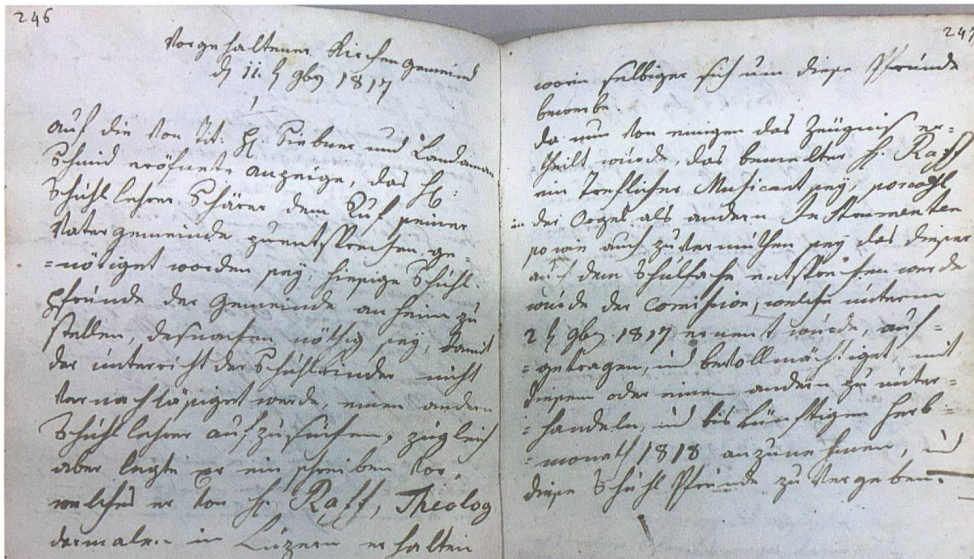 246
Vorgehaltener Kirchengemeind
d 11. 9bris 1817
1
auf die von Tit. H. Siebner und Landaman
Schmid eröfnete anzeige, das H:
Schuhllehrer Schärer dem Ruf seiner
Vatergemeinde zuentsprechen ge=
=nötiget worden sey, hiesige Schuhl
Pfründe der gemeinde anheim zu
stellen, desnachen nöthig sey, damit
der unterricht der Schuhlkinder nicht
vernachläsiget werde, einen andern
Schuhllehrer aufzusuchen, zugleich
aber legte er ein schreiben vor,
welches er von H. Raff, Theolog
dermalen in Luzern erhalten
247
worin selbiger sich um diese Pfründe
bewerbe.
da nun von einigen das Zeügnis er=
theilt wurde, das bemelter H. Raff
ein Treflicher Musicant sey, sowohl
in der Orgel als andern Instrumenten
so wie auch zu vermuthen sey das dieser
auch dem Schulfache entsprechen werde
wurde der Comission, welche unterm
2 9bris 1817 ernent wurde, auf=
=getragen, und bevollmächtiget, mit
diesem oder einem andern zu unter=
=handeln, und bis künftigen Herb=
=monath 1818 anzunehmen, und
diese Schuhl Pfründe zu vergeben.